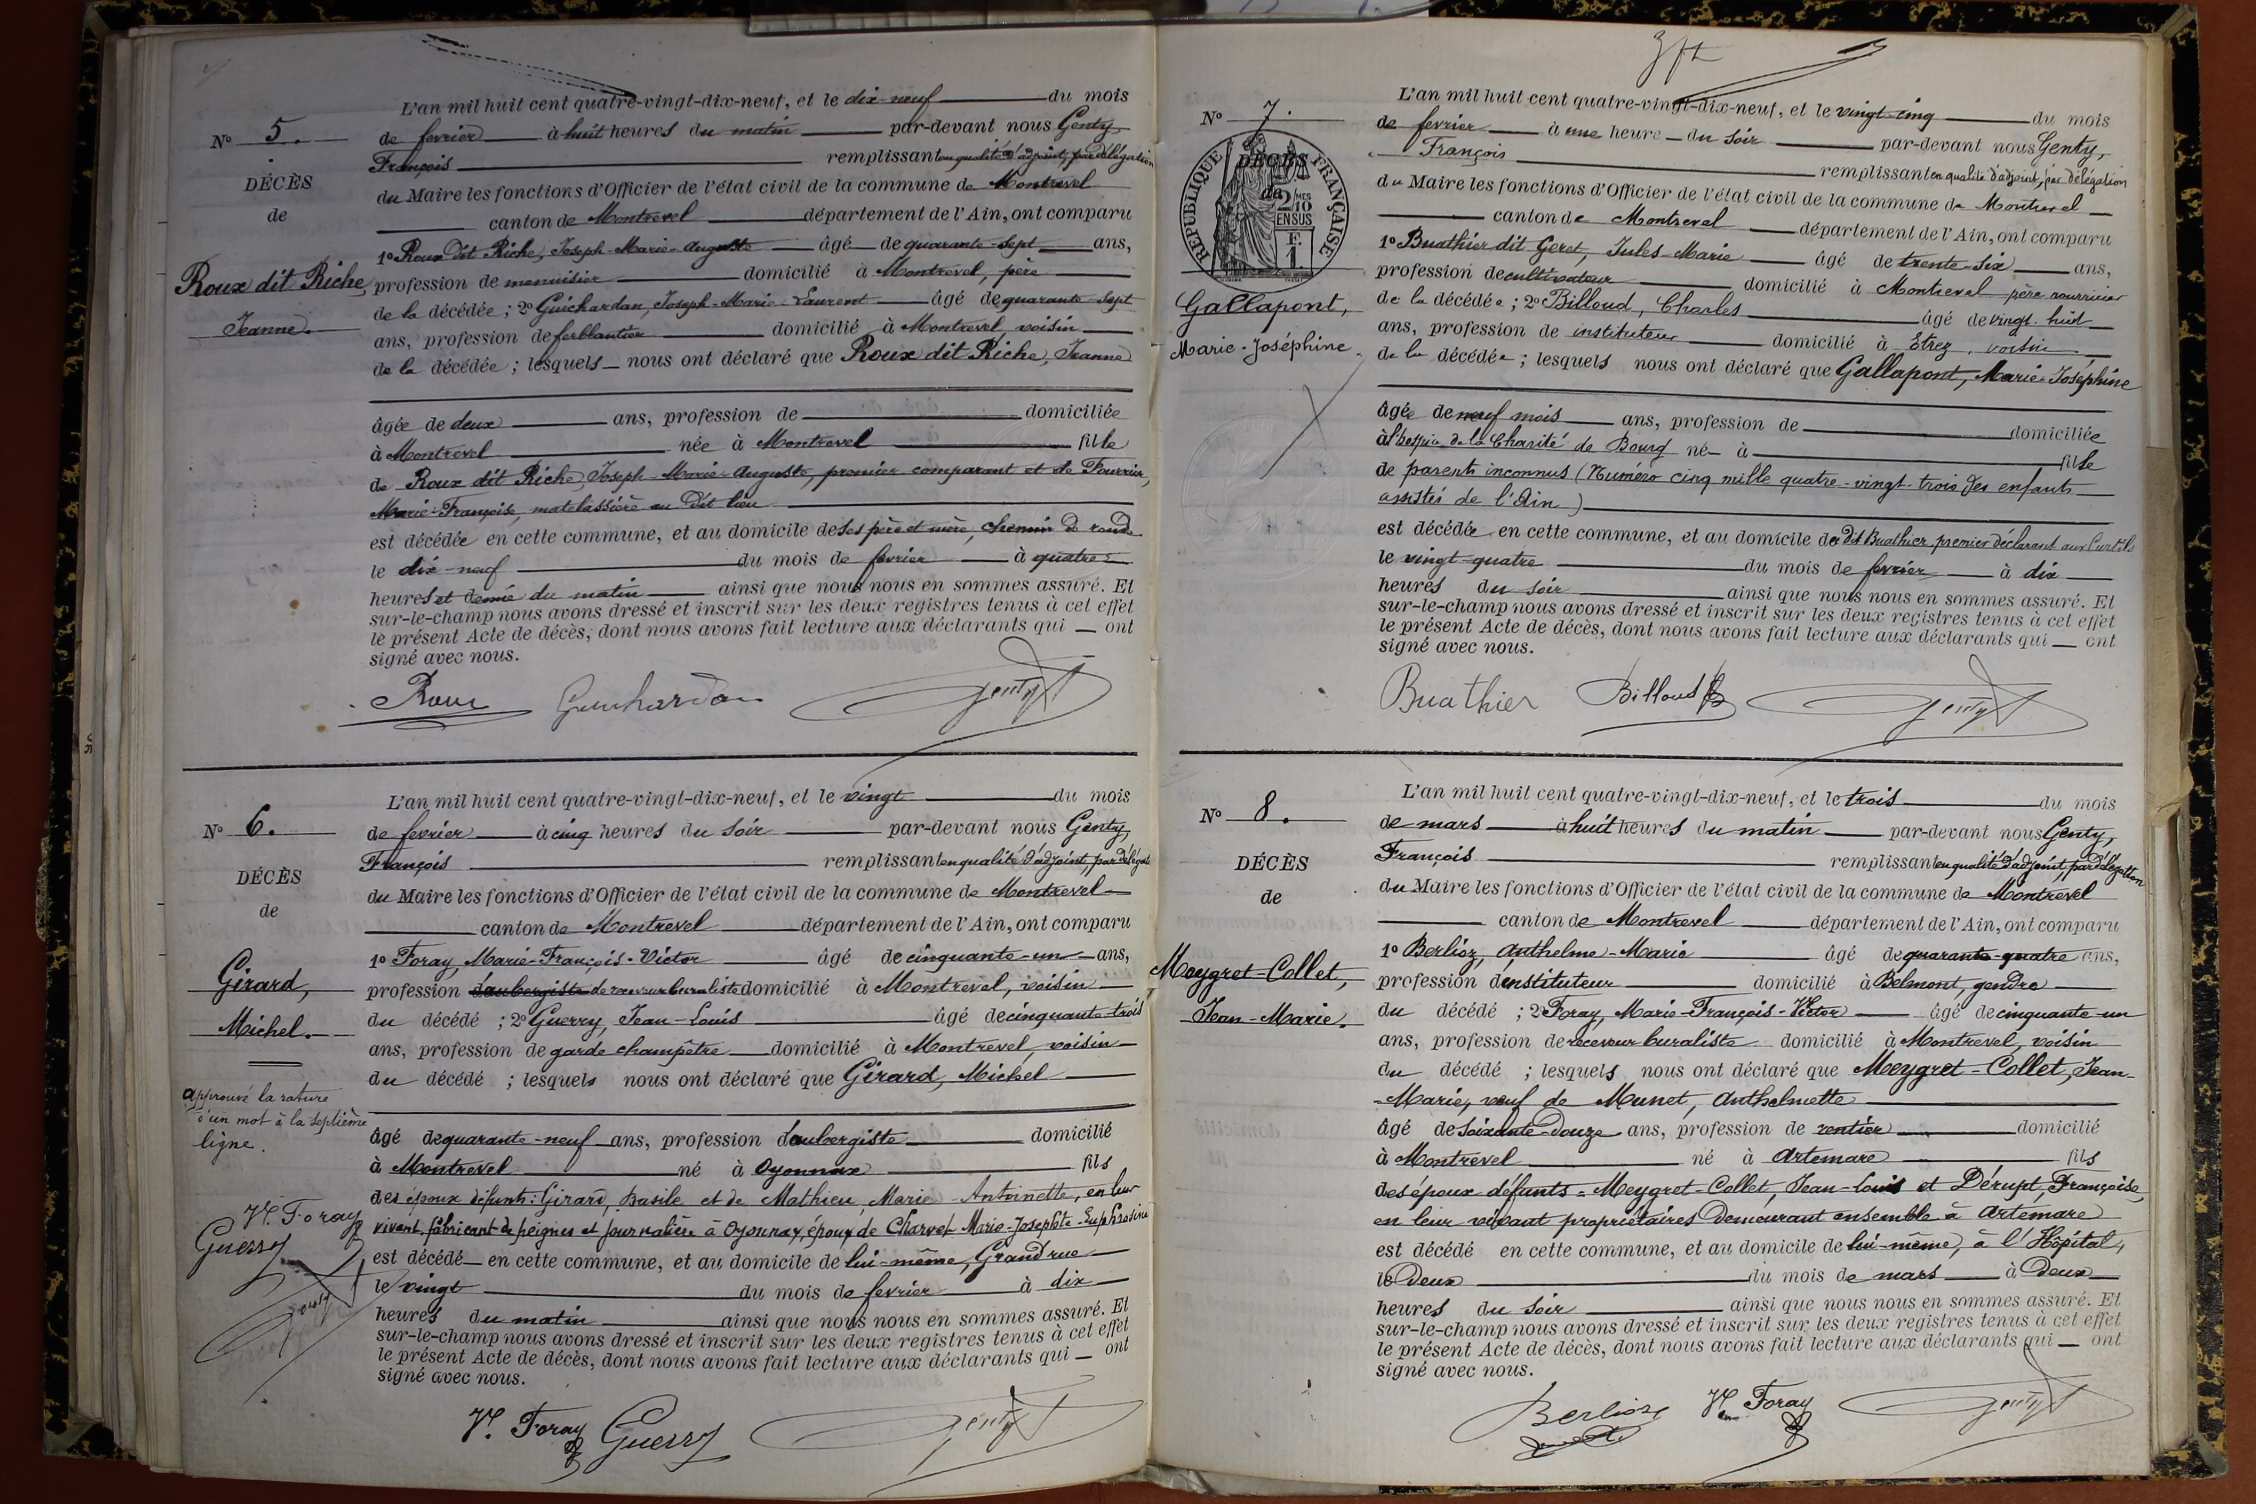 N° 5.
DÉCÈS
de
Roux dit Riche
Jeanne.
L'an mil huit cent quatre-vingt-dix-neuf, et le dix-neuf du mois
de fevrier à huit heures du matin par-devant nous Genty,
François remplissant en qualité d'adjoint, par délégation
du Maire les fonctions d'Officier de l'état civil de la commune de Montrevel
canton de Montrevel département de l'Ain, ont comparu
1° Roux dit Riche, Joseph-Marie-Auguste âgé de quarante-sept ans,
profession de menuisier domicilié à Montrevel, père
de la décédée ; 2° Guichardan, Joseph-Marie-Laurent âgé de quarante-sept
ans, profession de ferblantier domicilié à Montrevel, voisin
de la décédée ; lesquels nous ont déclaré que Roux dit Riche, Jeanne
âgée de deux ans, profession de domiciliée
à Montrevel née à Montrevel fille
de Roux dit Riche, Joseph-Marie-Auguste, premier comparant et de Fourrier,
Marie-Françoise, matelassière au dit lieu
est décédée en cette commune, et au domicile de ses père et mère, chemin de ronde
le dix-neuf du mois de fevrier à quatre
heures et demie du matin ainsi que nous nous en sommes assuré. Et
sur-le-champ nous avons dressé et inscrit sur les deux registres tenus à cet effet
le présent Acte de décès, dont nous avons fait lecture aux déclarants qui ont
signé avec nous.
Roux Guichardan Genty
N° 6.
DÉCÈS
de
Girard,
Michel.
approuvé la rature
d'un mot à la septième
ligne.
Vr. Foray
Guerry
Genty
L'an mil huit cent quatre-vingt-dix-neuf, et le vingt du mois
de fevrier à cinq heures du soir par-devant nous Genty,
François remplissant en qualité d'adjoint, par délégation
du Maire les fonctions d'Officier de l'état civil de la commune de Montrevel
canton de Montrevel département de l'Ain, ont comparu
1° Foray, Marie-François-Victor âgé de cinquante-un ans,
profession d'aubergiste de receveur buraliste domicilié à Montrevel, voisin
du décédé ; 2° Guerry, Jean-Louis âgé de cinquante-trois
ans, profession de garde champêtre domicilié à Montrevel, voisin
du décédé ; lesquels nous ont déclaré que Girard, Michel
âgé de quarante-neuf ans, profession d'aubergiste domicilié
à Montrevel né à Oyonnax fils
des époux défunts : Girard, Basile et de Mathieu, Marie-Antoinette, en leur
vivant, fabricant de peignes et journalière à Oyonnax, époux de Charvet Marie-Josephte-Euphrosine
est décédé en cette commune, et au domicile de lui-même, Grand rue
le vingt du mois de fevrier à dix
heures du matin ainsi que nous nous en sommes assuré. Et
sur-le-champ nous avons dressé et inscrit sur les deux registres tenus à cet effet
le présent Acte de décès, dont nous avons fait lecture aux déclarants qui ont
signé avec nous.
Vr. Foray Guerry Genty
N° 7.
RÉPUBLIQUE FRANÇAISE
2/10 MES
EN SUS
1 F.
DÉCÈS
de
Gallapont,
Marie-Joséphine
L'an mil huit cent quatre-vingt-dix-neuf, et le vingt-cinq du mois
de fevrier à une heure du soir par-devant nous Genty,
François remplissant en qualité d'adjoint, par délégation
du Maire les fonctions d'Officier de l'état civil de la commune de Montrevel
canton de Montrevel département de l'Ain, ont comparu
1° Buathier dit Geret, Jules-Marie âgé de trente-six ans,
profession de cultivateur domicilié à Montrevel père nourricier
de la décédée ; 2° Billoud, Charles âgé de vingt-huit
ans, profession de instituteur domicilié à Etrez, voisin
de la décédée ; lesquels nous ont déclaré que Gallapont, Marie-Joséphine
âgée de neuf mois ans, profession de domiciliée
à l'hospice de la Charité de Bourg né à fille
de parents inconnus (Numéro cinq mille quatre-vingt-trois des enfants
assistés de l'Ain)
est décédée en cette commune, et au domicile de dit Buathier premier déclarant aux Curtils
le vingt-quatre du mois de fevrier à dix
heures du soir ainsi que nous nous en sommes assuré. Et
sur-le-champ nous avons dressé et inscrit sur les deux registres tenus à cet effet
le présent Acte de décès, dont nous avons fait lecture aux déclarants qui ont
signé avec nous.
Buathier Billoud Genty
N° 8.
DÉCÈS
de
Meygret-Collet,
Jean-Marie.
L'an mil huit cent quatre-vingt-dix-neuf, et le trois du mois
de mars à huit heures du matin par-devant nous Genty,
François remplissant en qualité d'adjoint, par délégation
du Maire les fonctions d'Officier de l'état civil de la commune de Montrevel
canton de Montrevel département de l'Ain, ont comparu
1° Berlioz, Anthelme-Marie âgé de quarante-quatre ans,
profession d'instituteur domicilié à Belmont, gendre
du décédé ; 2° Foray, Marie-François-Victor âgé de cinquante-un
ans, profession de receveur buraliste domicilié à Montrevel, voisin
du décédé ; lesquels nous ont déclaré que Meygret-Collet, Jean-
-Marie, veuf de Munet, Anthelmette
âgé de soixante-douze ans, profession de rentier domicilié
à Montrevel né à Artemare fils
des époux défunts = Meygret-Collet, Jean-Louis et Dérupt, Françoise,
en leur vivant propriétaires demeurant ensemble à Artemare
est décédé en cette commune, et au domicile de lui-même, à l'Hôpital,
le deux du mois de mars à deux
heures du soir ainsi que nous nous en sommes assuré. Et
sur-le-champ nous avons dressé et inscrit sur les deux registres tenus à cet effet
le présent Acte de décès, dont nous avons fait lecture aux déclarants qui ont
signé avec nous.
Berlioz Vr. Foray Genty